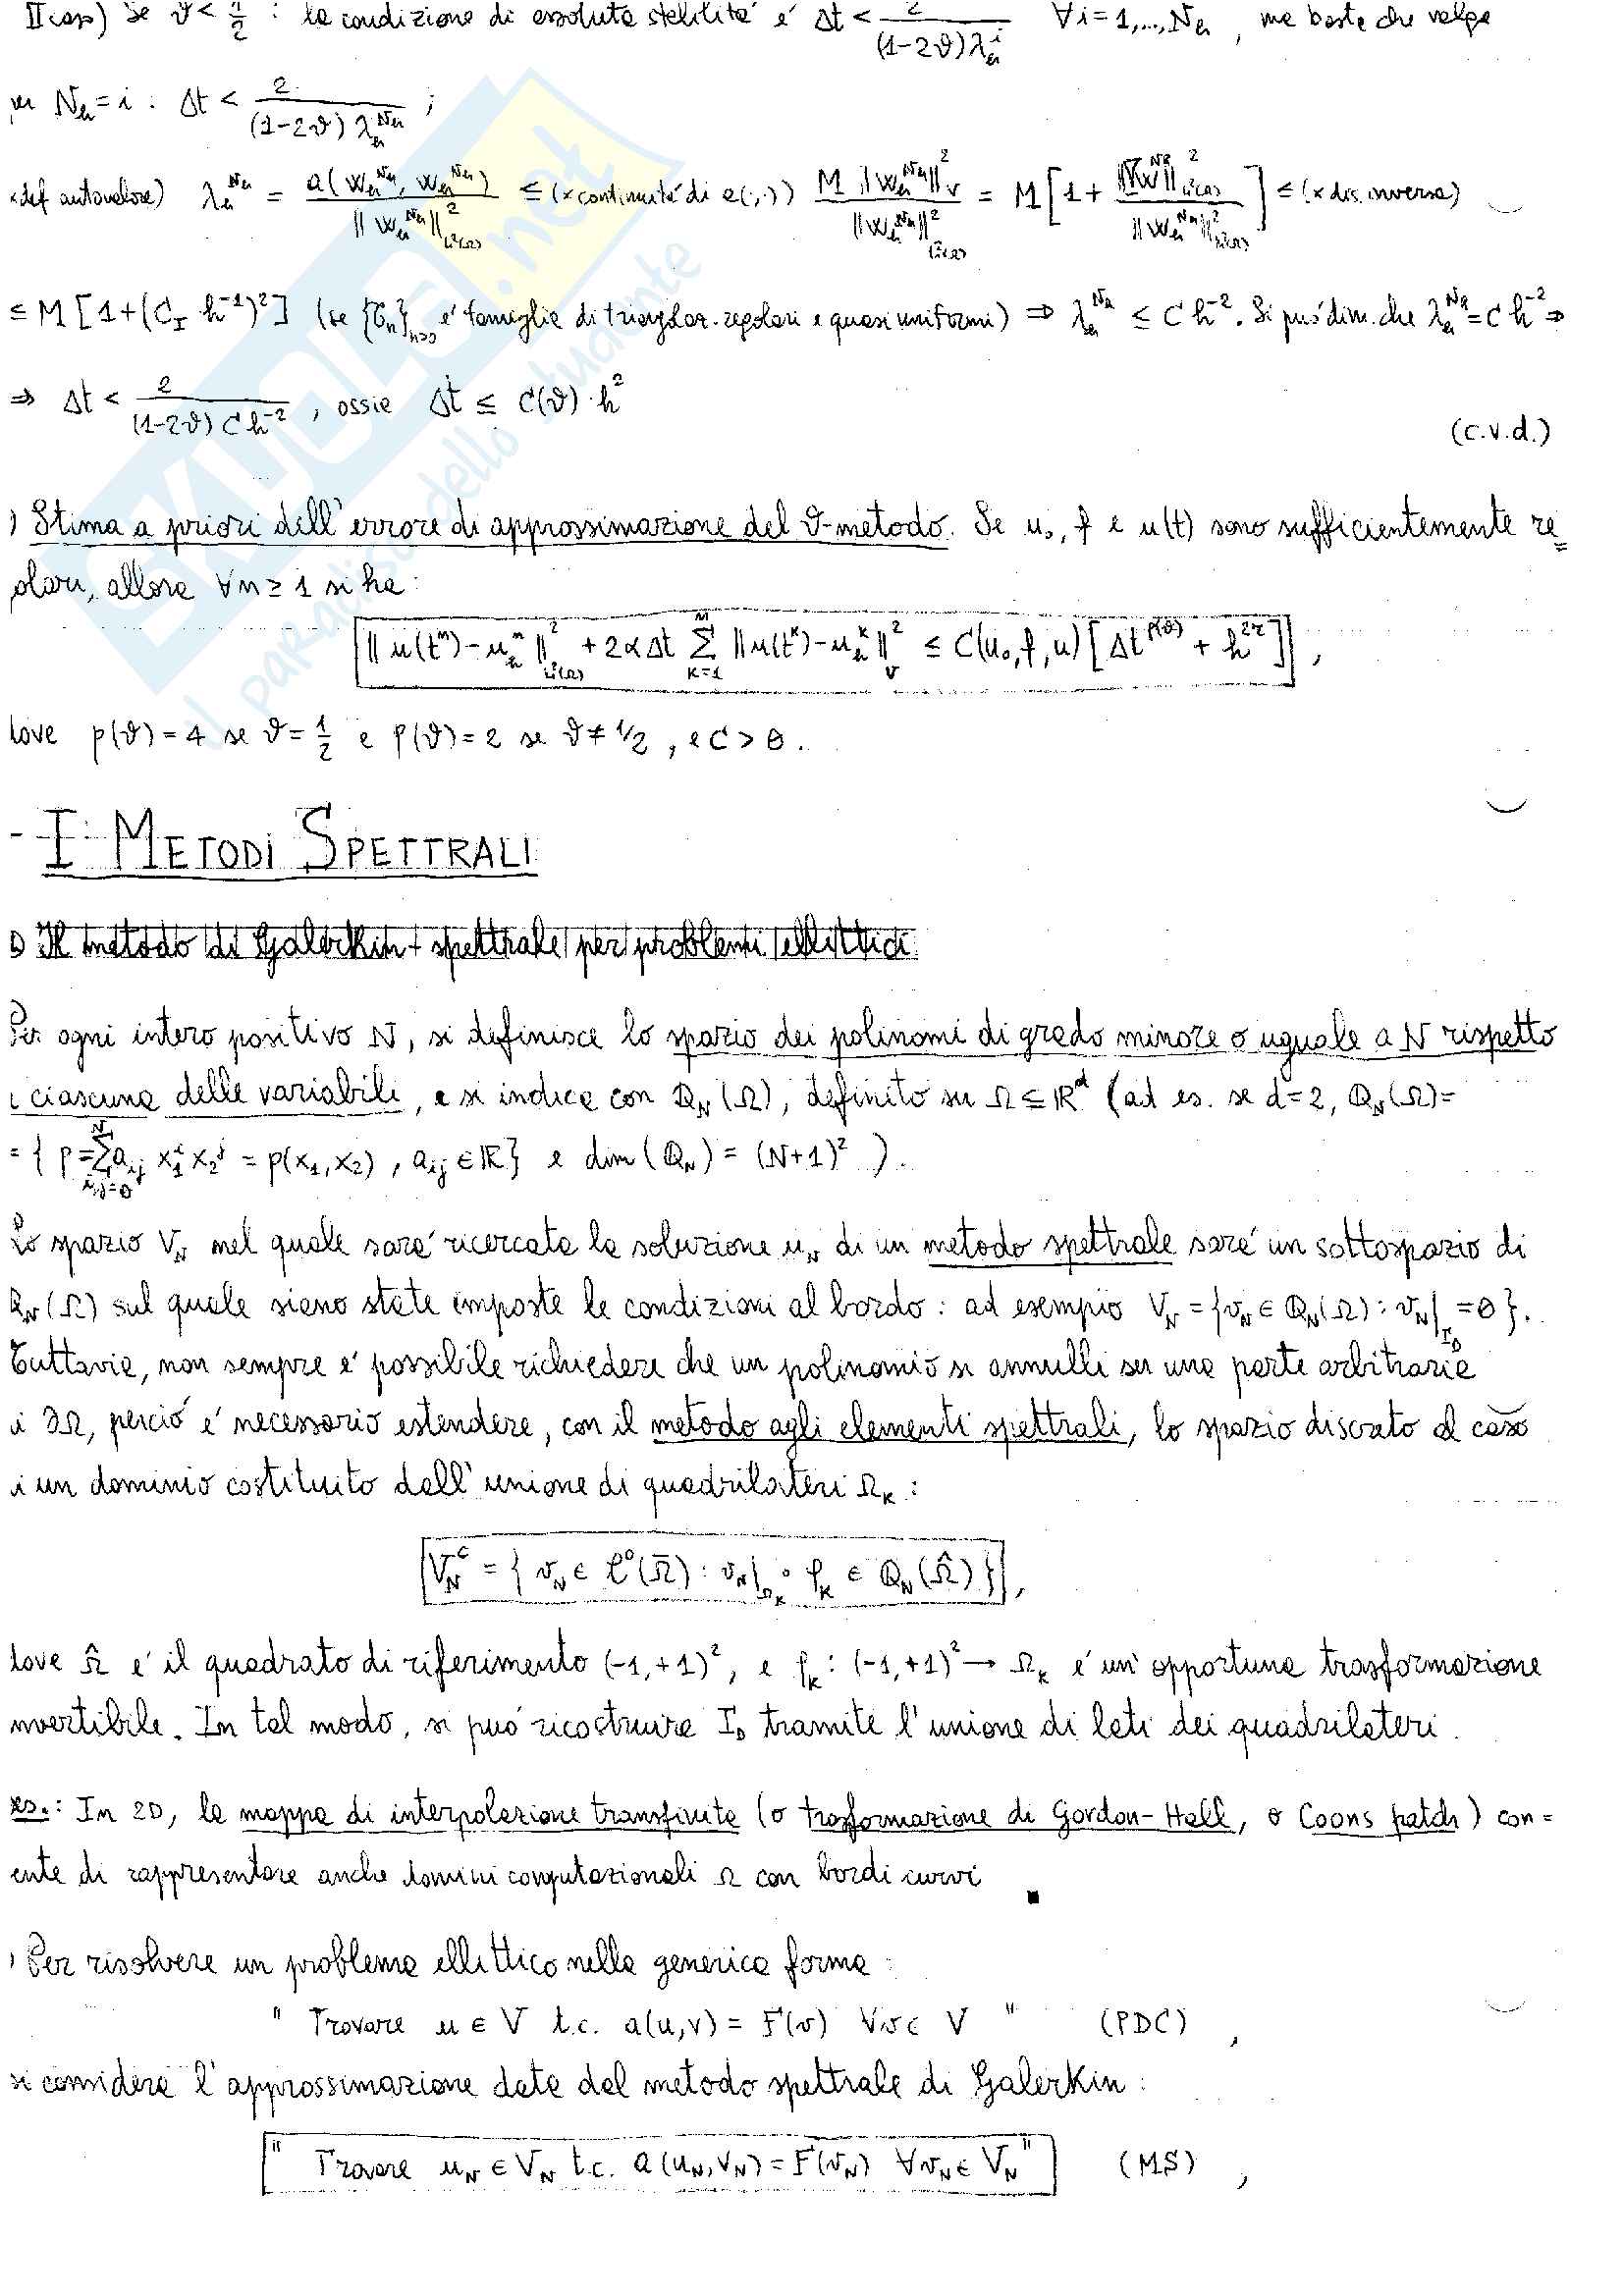 II caso) Se ϑ < 1/2 : la condizione di assoluta stabilità è Δt < 2/((1-2ϑ)λ_h^i) ∀i=1,...,N_h , ma basta che valga
per N_h = i : Δt < 2/((1-2ϑ) λ_h^{N_h}) ;
(x def autovalore) λ_h^{N_h} = a(w_h^{N_h}, w_h^{N_h})/‖w_h^{N_h}‖²_{L²(Ω)} ≤ (x continuità di a(·,·)) M ‖w_h^{N_h}‖²_V/‖w_h^{N_h}‖²_{L²(Ω)} = M[1 + ‖∇w^{N_h}‖²_{L²(Ω)}/‖w_h^{N_h}‖²_{L²(Ω)}] ≤ (x dis. inversa)
≤ M [1+(C_I h^{-1})²] (se {𝒯_h}_{h>0} è famiglia di triangolaz. regolari e quasi uniformi) ⇒ λ_h^{N_h} ≤ C h^{-2}. Si può dim. che λ_h^{N_h} = C h^{-2} ⇒
⇒ Δt < 2/((1-2ϑ) C h^{-2}) , ossia Δt ≤ C(ϑ)·h²
(c.v.d.)
) Stima a priori dell'errore di approssimazione del ϑ-metodo. Se u₀, f e u(t) sono sufficientemente re=
olari, allora ∀n ≥ 1 si ha :
‖u(t^n) - u_h^n‖²_{L²(Ω)} + 2αΔt Σ_{k=1}^{n} ‖u(t^k) - u_h^k‖²_V ≤ C(u₀,f,u) [Δt^{p(ϑ)} + h^{2r}] ,
dove p(ϑ) = 4 se ϑ = 1/2 e p(ϑ) = 2 se ϑ ≠ 1/2 , e C > 0 .
- I METODI SPETTRALI
Il metodo di Galerkin-spettrale per problemi ellittici
Per ogni intero positivo N, si definisce lo spazio dei polinomi di grado minore o uguale a N rispetto
a ciascuna delle variabili, e si indica con Q_N(Ω), definito su Ω ⊆ ℝ^d (ad es. se d=2, Q_N(Ω)=
= { p = Σ_{i,j=0}^{N} a_ij x₁^i x₂^j = p(x₁,x₂) , a_ij ∈ ℝ} e dim(Q_N) = (N+1)² ).
Lo spazio V_N nel quale sarà ricercata la soluzione u_N di un metodo spettrale sarà un sottospazio di
Q_N(Ω) sul quale siano state imposte le condizioni al bordo : ad esempio V_N = {v_N ∈ Q_N(Ω) : v_N|_{Γ_D} = 0 }.
Tuttavia, non sempre è possibile richiedere che un polinomio si annulli su una parte arbitraria
di ∂Ω, perciò è necessario estendere, con il metodo agli elementi spettrali, lo spazio discreto al caso
di un dominio costituito dall'unione di quadrilateri Ω_k :
V_N^C = { v_N ∈ C⁰(Ω̄) : v_N|_{Ω_k} ∘ φ_k ∈ Q_N(Ω̂) } ,
dove Ω̂ è il quadrato di riferimento (-1,+1)², e φ_k : (-1,+1)² → Ω_k è un'opportuna trasformazione
invertibile. In tal modo, si può ricostruire Γ_D tramite l'unione di lati dei quadrilateri .
es.: In 2D, la mappa di interpolazione transfinita (o trasformazione di Gordon-Hall, o Coons patch) con=
ente di rappresentare anche domini computazionali Ω con bordi curvi ■
) Per risolvere un problema ellittico nella generica forma :
" Trovare u ∈ V t.c. a(u,v) = F(v) ∀v ∈ V " (PDC) ,
si considera l'approssimazione data dal metodo spettrale di Galerkin :
" Trovare u_N ∈ V_N t.c. a(u_N,v_N) = F(v_N) ∀v_N ∈ V_N " (MS) ,
SKUOLA.net
Il paradiso dello studente